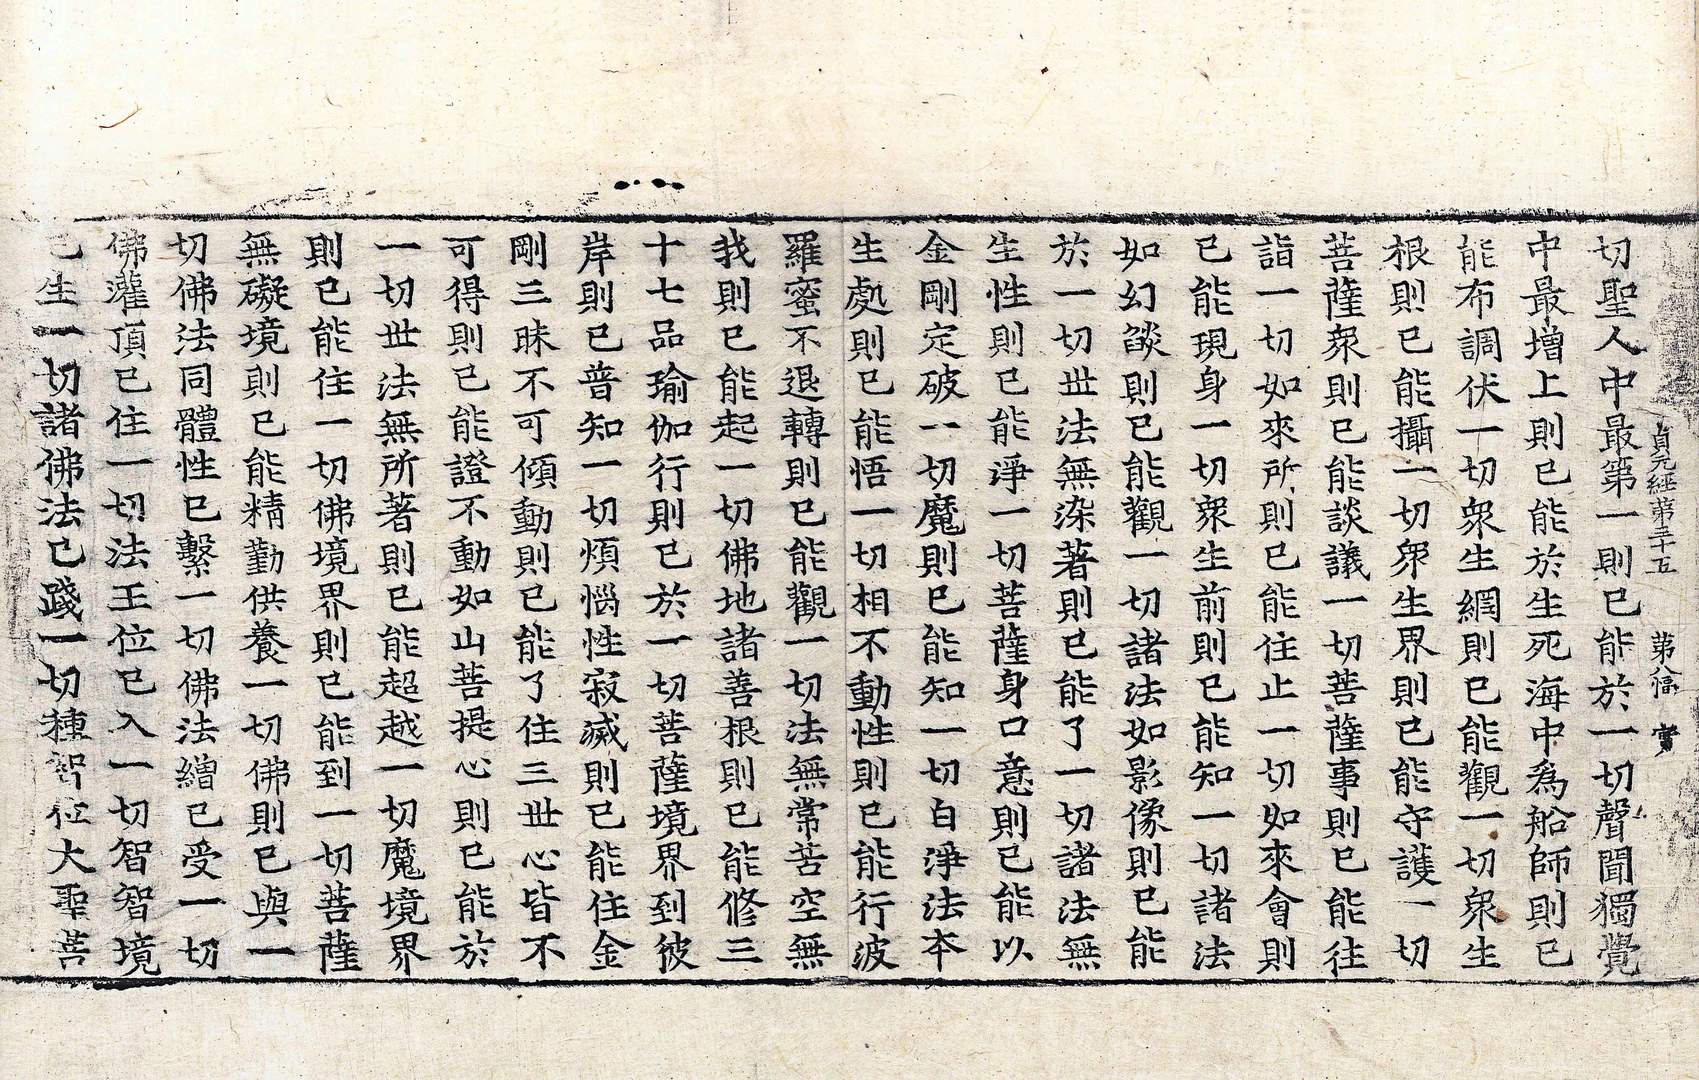 貞元經第三十五　第八幅　賓
切聖人中最第一則已能於一切聲聞獨覺
中最增上則已能於生死海中為船師則已
能布調伏一切衆生網則已能觀一切衆生
根則已能攝一切衆生界則已能守護一切
菩薩衆則已能談議一切菩薩事則已能往
詣一切如來所則已能住止一切如來會則
已能現身一切衆生前則已能知一切諸法
如幻燄則已能觀一切諸法如影像則已能
於一切世法無染著則已能了一切諸法無
生性則已能諍一切菩薩身口意則已能以
金剛定破一切魔則已能知一切白淨法本
生處則已能悟一切相不動性則已能行波
羅蜜不退轉則已能觀一切法無常苦空無
我則已能起一切佛地諸善根則已能修三
十七品瑜伽行則已於一切菩薩境界到彼
岸則已普知一切煩惱性寂滅則已能住金
剛三昧不可傾動則已能了住三世心皆不
可得則已能證不動如山菩提心則已能於
一切世法無所著則已能超越一切魔境界
則已能住一切佛境界則已能到一切菩薩
無礙境則已能精勤供養一切佛則已與一
切佛法同體性已繫一切佛法繒已受一切
佛灌頂已住一切法王位已入一切智智境
已生一切諸佛法已踐一切種智位大聖菩